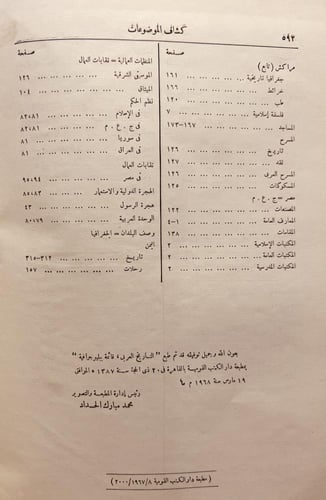 ٥٩٢
كشاف الموضوعات
صفحة
مراكش (تابع)
جغرافيا تاريخية ... ... ... ١٦١
خرائط ... ... ... ١٦٦
طب ... ... ... ١٢٠
فلسفة إسلامية ... ... ... ٧
المساجد ... ... ... ١٦٧–١٧٣
المسرح
تاريخ ... ... ... ١٢٦
نقد ... ... ... ١٢٧
المسرح العربى ... ... ... ١٢٦
المسكوكات ... ... ... ١٢٥
مصر = ج . ع . م
المصنفات ... ... ... ١٢٢
المعارف العامة ... ... ... ١–٤
المقامات ... ... ... ١٣٨
المكتبات الإسلامية ... ... ... ٢
المكتبات العامة ... ... ... ٢
المكتبات المدرسية ... ... ... ٢
صفحة
المنظمات العمالية = نقابات العمال
الموسيقى الشرقية ... ... ... ١٢٦
الميثاق ... ... ... ١٠٤
نظم الحكم
فى الإسلام ... ... ... ٨١،٨٢
فى ج . ع . م ... ... ... ٨١،٨٢
فى سوريا ... ... ... ٨١
فى العراق ... ... ... ٨١
نقابات العمال
فى مصر ... ... ... ٩٤،٩٥
الهجرة الدولية والاستعمار ... ... ... ٨٣،٨٤
هجرة الرسول ... ... ... ٤٣
الوحدة العربية ... ... ... ٧٩،٨٠
وصف البلدان = الجغرافيا
اليمن
تاريخ ... ... ... ٣١٢–٣١٥
رحلات ... ... ... ١٥٧
بعون الله وجميل توفيقه قد تم طبع "التاريخ العربى، قائمة ببليوجرافية"
بمطبعة دار الكتب القومية بالقاهرة فى ٢٠ ذى الحجة سنة ١٣٨٧ هـ الموافق
١٩ مارس سنة ١٩٦٨ م
رئيس إدارة المطبعة والتصوير
محمد مبارك الحداد
(مطبعة دار الكتب القومية ٨/١٩٦٧/٢٠٠٠)